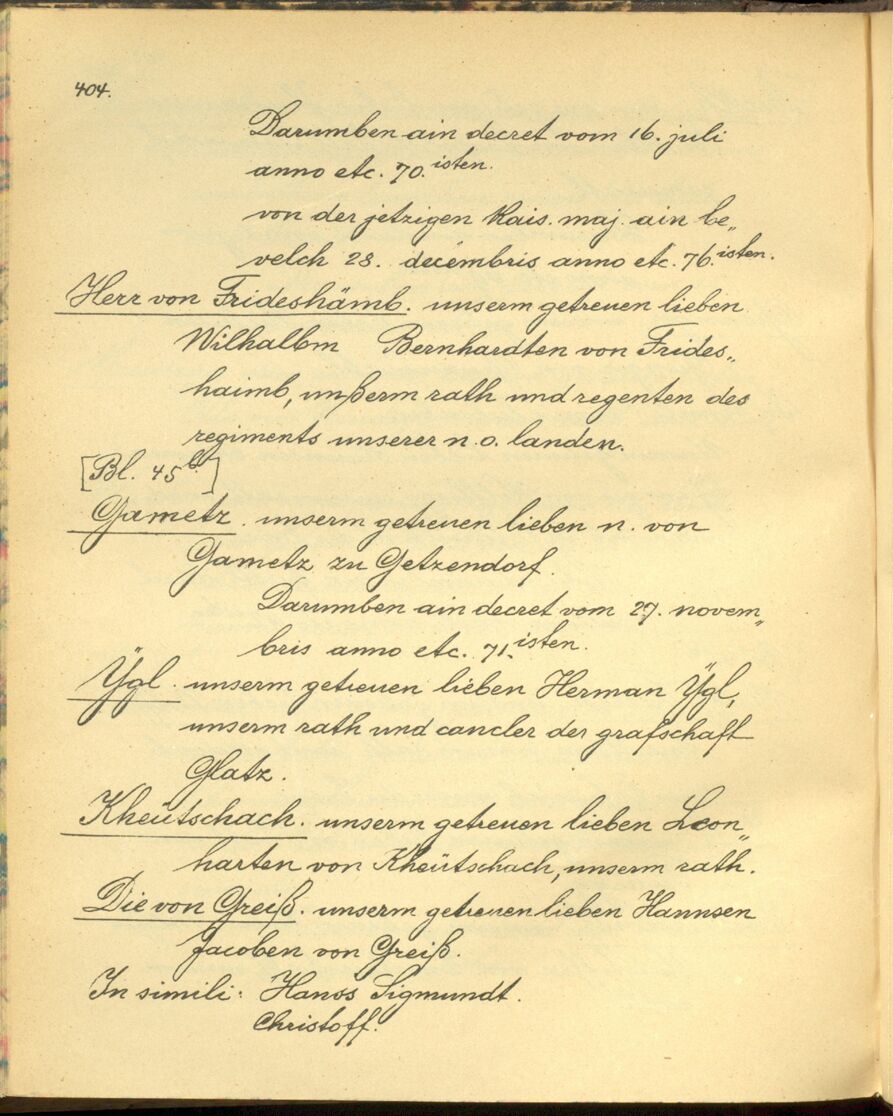 404.
Darumben ain decret vom 16. juli
anno etc. 70.isten.
von der jetzigen Kais. maj. ain be„
velch 28. decembris anno etc. 76.isten.
Herr von Frideshämb. unserm getreuen lieben
Wilhalbm Bernhardten von Frides„
haimb, unßerm rath und regenten des
regiments unserer n. o. landen.
[Bl. 45b.]
Gametz. unserm getreuen lieben n. von
Gametz zu Getzendorf.
Darumben ain decret vom 27. novem„
bris anno etc. 71.isten.
Ÿgl. unserm getreuen lieben Herman Ÿgl,
unserm rath und cancler der grafschaft
Glatz.
Kheütschach. unserm getreuen lieben Leon„
harten von Kheütschach, unserm rath.
Die von Greiß. unserm getreuen lieben Hannsen
Jacoben von Greiß.
In simili: Hanss Sigmundt.
Christoff.